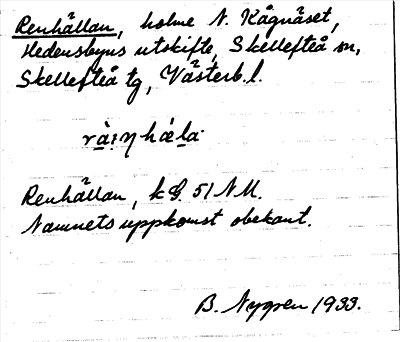 Renhällan, holme N. Kågnäset,
Hedensbyns utskifte, Skellefteå sn,
Skellefteå tg, Västerb. l.
Renhällan, k G. 51 NM.
Namnets uppkomst obekant.
B. Nygren 1933.